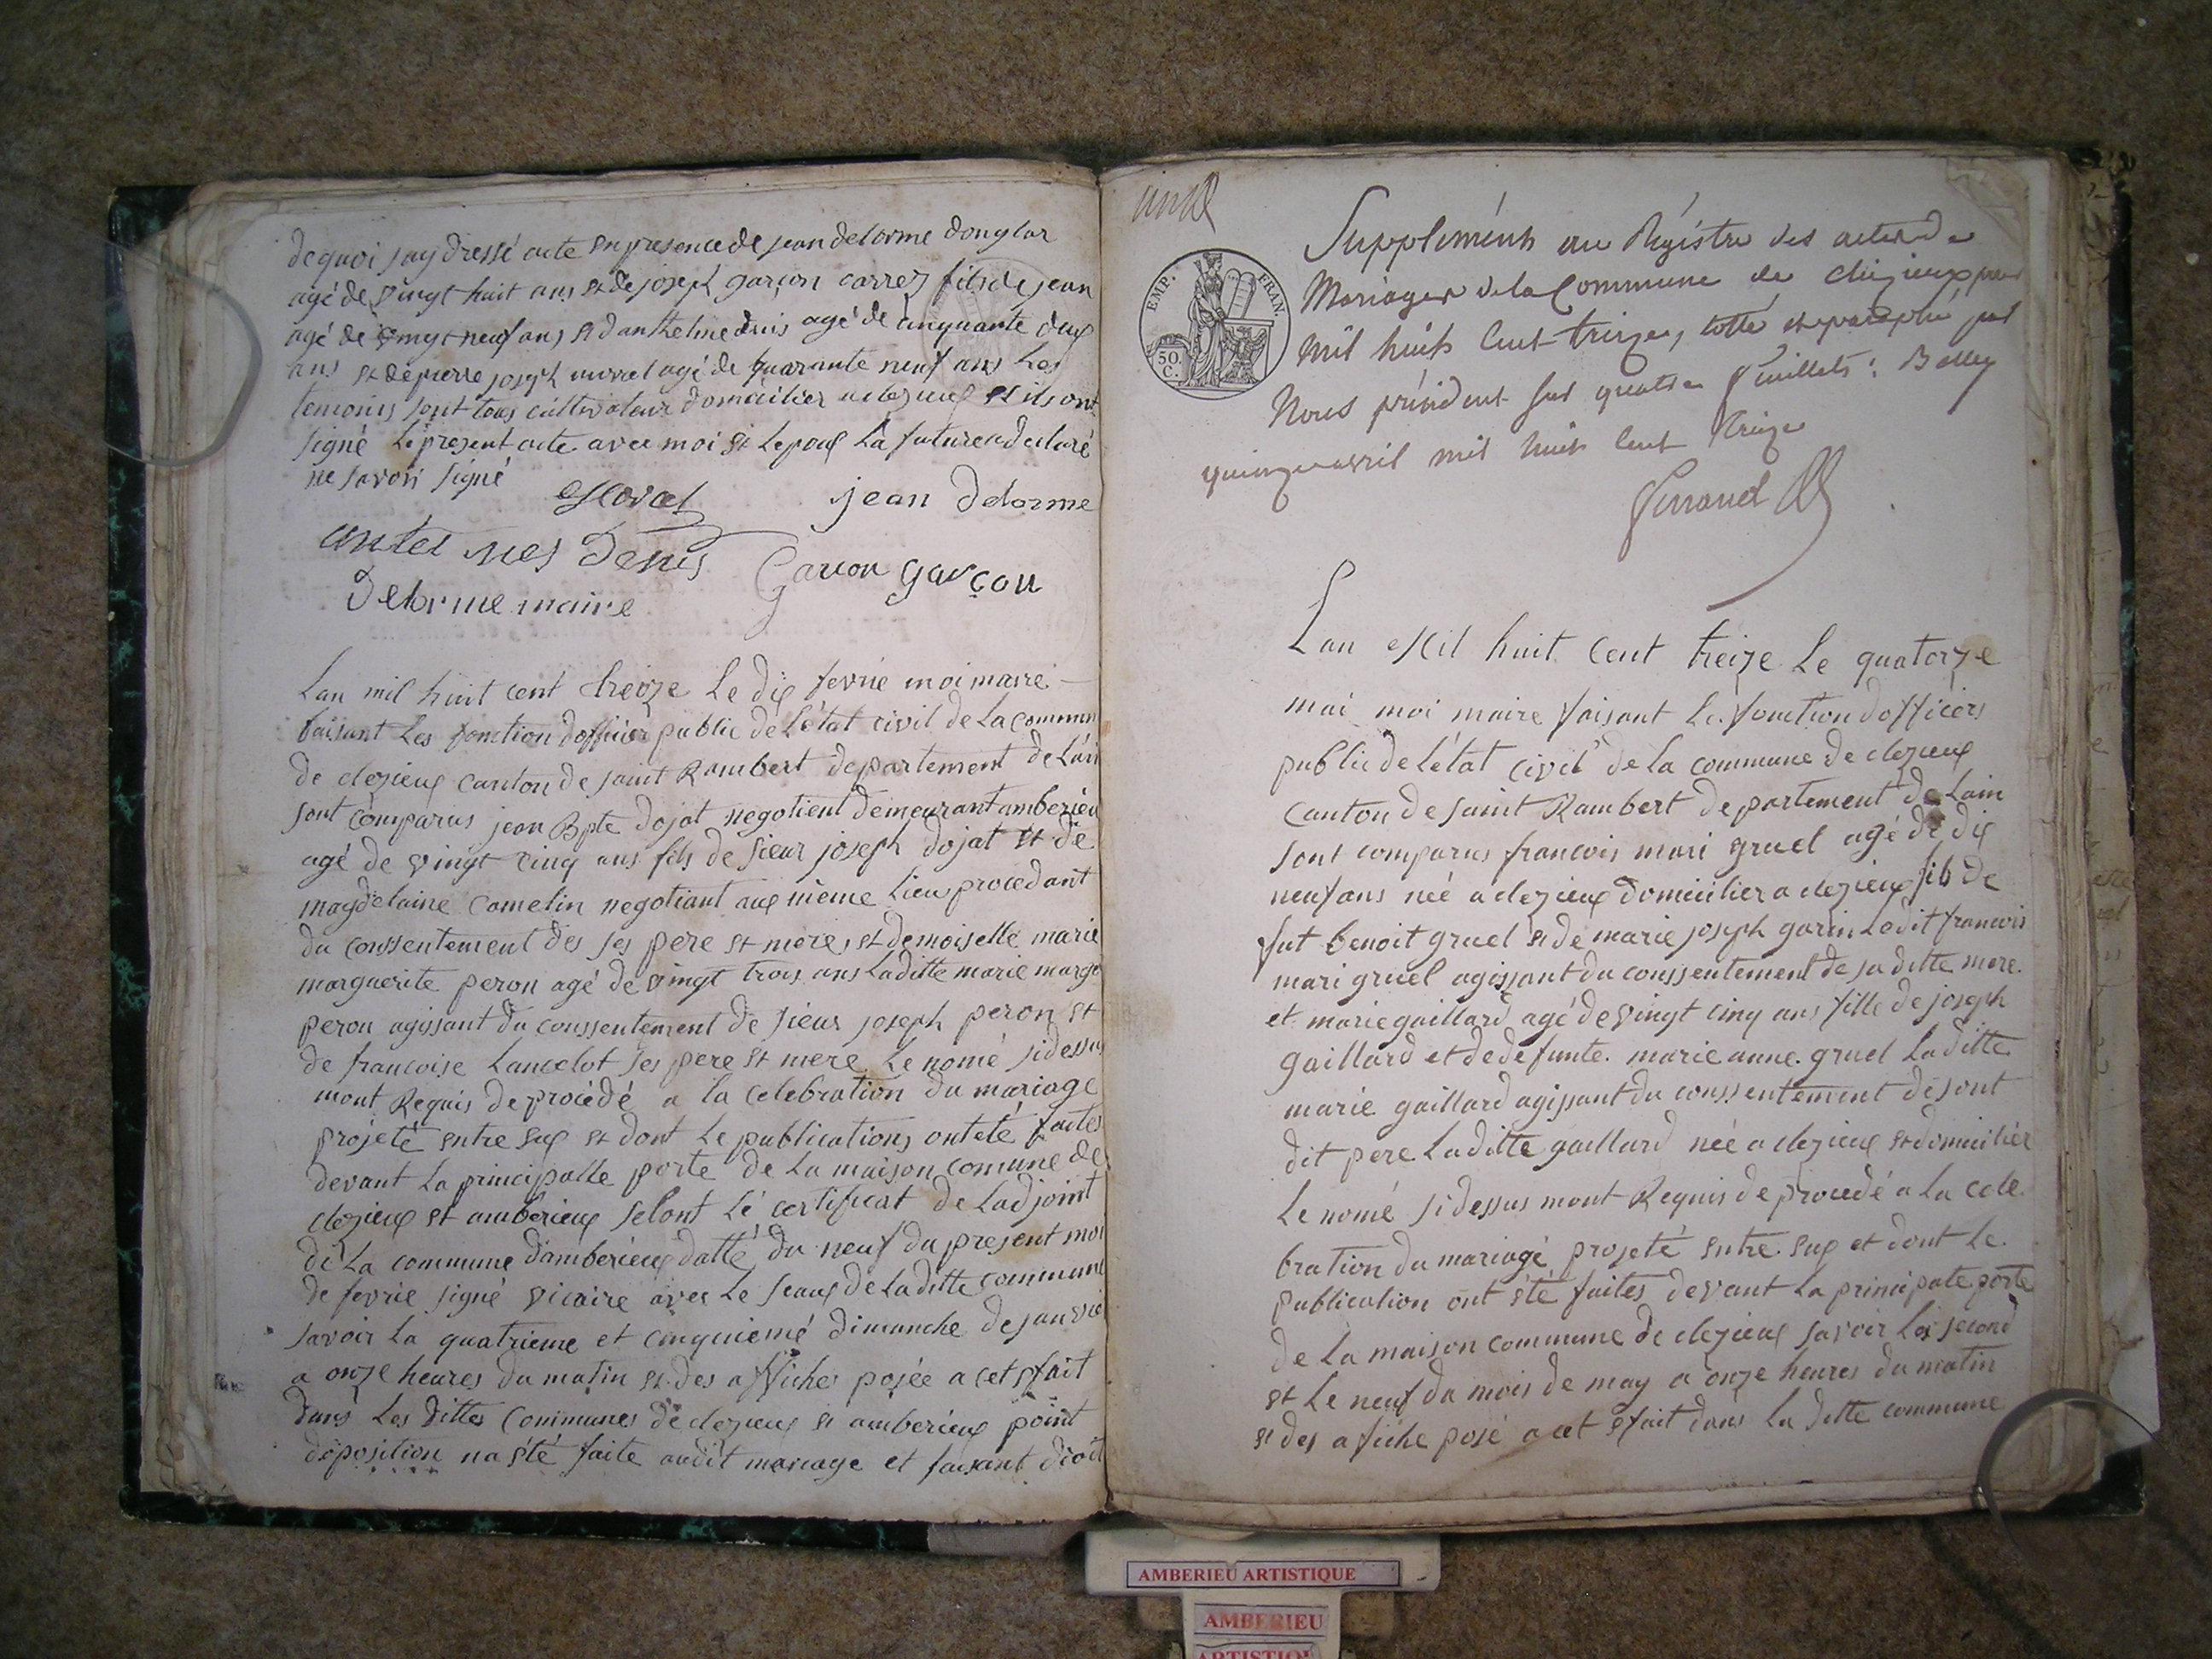 de quoi jay dressé acte en presence de jean delorme donglar
agé de vingt huit ans et de joseph garçon carrez fils de jean
agé de vingt neuf ans et danthelme denis agé de cinquante deux
ans et de pierre joseph morel agé de quarante neuf ans Les
temoins sont tous cultivateur domicilier a clezieux et ils ont
signé Le present acte avec moi et Lepoux La future a declaré
ne savoir signé
jean Delorme
antel mes Denis
Garcon garçon
Delorme maire
Lan mil huit cent treize Le dix fevrié moi maire
faisant Les fonction dofficier public de Létat civil de La commun
de clezieux canton de saint Rambert departement de Lain
sont comparus jean Bpte dojat negotient demeurant amberieu
agé de vingt cinq ans fils de sieur joseph dojat et de
magdelaine Camelin negotiant aux même Lieu procedant
du conssentement des ses pere et mere, et demoiselle marie
marguerite peron agé de vingt trois ans Laditte marie marge
peron agissant du conssentement de sieur joseph peron et
de francoise Lancelot ses pere et mere Le nomé sidessus
mont Requis de procédé a la celebration du mariage
projeté entre eux et dont Le publications ont été faites
devant La principalle porte de La maison comune de
clezieux et amberieux selont Lé certificat de Ladjoint
dé La commune damberieux datté du neuf du present moi
de fevrie signé vicaire avec Le seaux de Laditte commune
savoir La quatrieme et cinquiemé dimanche de janvié
a onze heures du matin et des affiches posée a cet efait
dans Les dittes Communes de clezieux et amberieux point
doposition na été faite audit mariage et faisant droit
EMP. FRAN.
50. C.
Supplément au Régistre des actes de
Mariages de la Commune de Clézieux pour
mil huit Cent treize, Cotté et paraphé par
Nous président sur quatre feuillets: Belley
quinze avril mil huit Cent treize
Lan Mil huit Cent treize Le quatorze
mai moi maire faisant Le fonction dofficiers
public de Létat civil de La commune de clezieux
Canton de saint Rambert departement de Lain
sont comparus francois mari gruel agé de dix
neuf ans née a clezieux domicilier a clezieux fils de
fut benoit gruel et de marie joseph garin Ledit francois
mari gruel agissant du conssentement de sa ditte mere.
et marie gaillard agé de vingt cinq ans fille de joseph
gaillard et de defunte. marie anne. gruel Laditte
marie gaillard agissant du conssentement de sont
dit pere Laditte gaillard née a clezieux et domicilier
Le nomé sidessus mont Requis de procedé a La cele.
bration du mariagé projeté entre eux et dont Le.
publication ont été faites devant La principale porte
de La maison commune de clezieux savoir Les second
et Le neuf du mois de may a onze heures du matin
et des afiche posé a cet efait dans La ditte commune
AMBERIEU ARTISTIQUE
AMBERIEU
ARTISTIQU